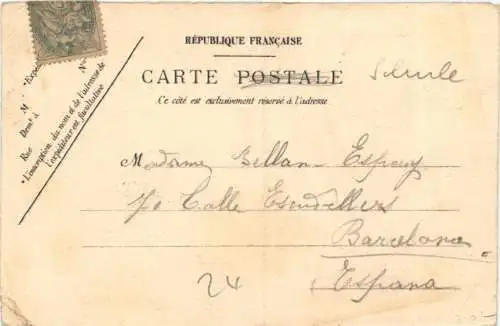 RÉPUBLIQUE FRANÇAISE
CARTE POSTALE
Ce côté est exclusivement réservé à l'adresse
M
Demt à
Rue
Nº
*L'inscription du nom et de l'adresse de
l'expéditeur est facultative
Madame Bellan Espouy
Calle Escudellers
Barcelona
España
24